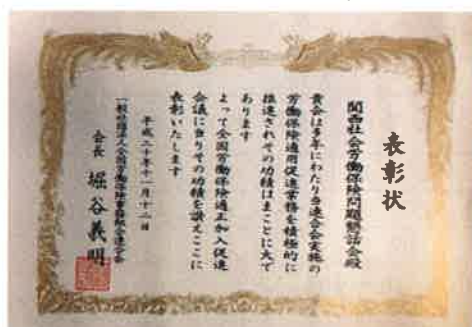 表彰状
関西社会労働保険問題懇話会殿
貴会は多年にわたり当連合会実施の
労働保険適用促進業務を積極的に
推進されその功績はまことに大で
あります
よって全国労働保険適正加入促進
会議に当りその功績を讃えここに
表彰いたします
平成二十年十一月十二日
一般社団法人全国労働保険事務組合連合会
会長 堀谷義明